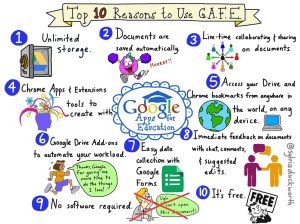 Top 10 Reasons to Use G.A.F.E.
1 Unlimited
storage.
2 Documents are
saved automatically.
3 Live-time collaborating & sharing
on documents.
4 Chrome Apps & Extensions
tools to
create with
Google
Apps
for
Education
5 Access your Drive and
Chrome bookmarks from anywhere in
the world, on any
device.
6 Google Drive Add-ons
to automate your workload.
Thanks, Google,
for giving me
more time to
do the things
I love!
7 Easy data
collection with
Google
Forms
8 Immediate feedback on documents
with chat, comments,
&
suggested
edits.
9 No software required.
Ugh.
Can't open
this document!
10 It's free.
FREE
@sylviaduckworth